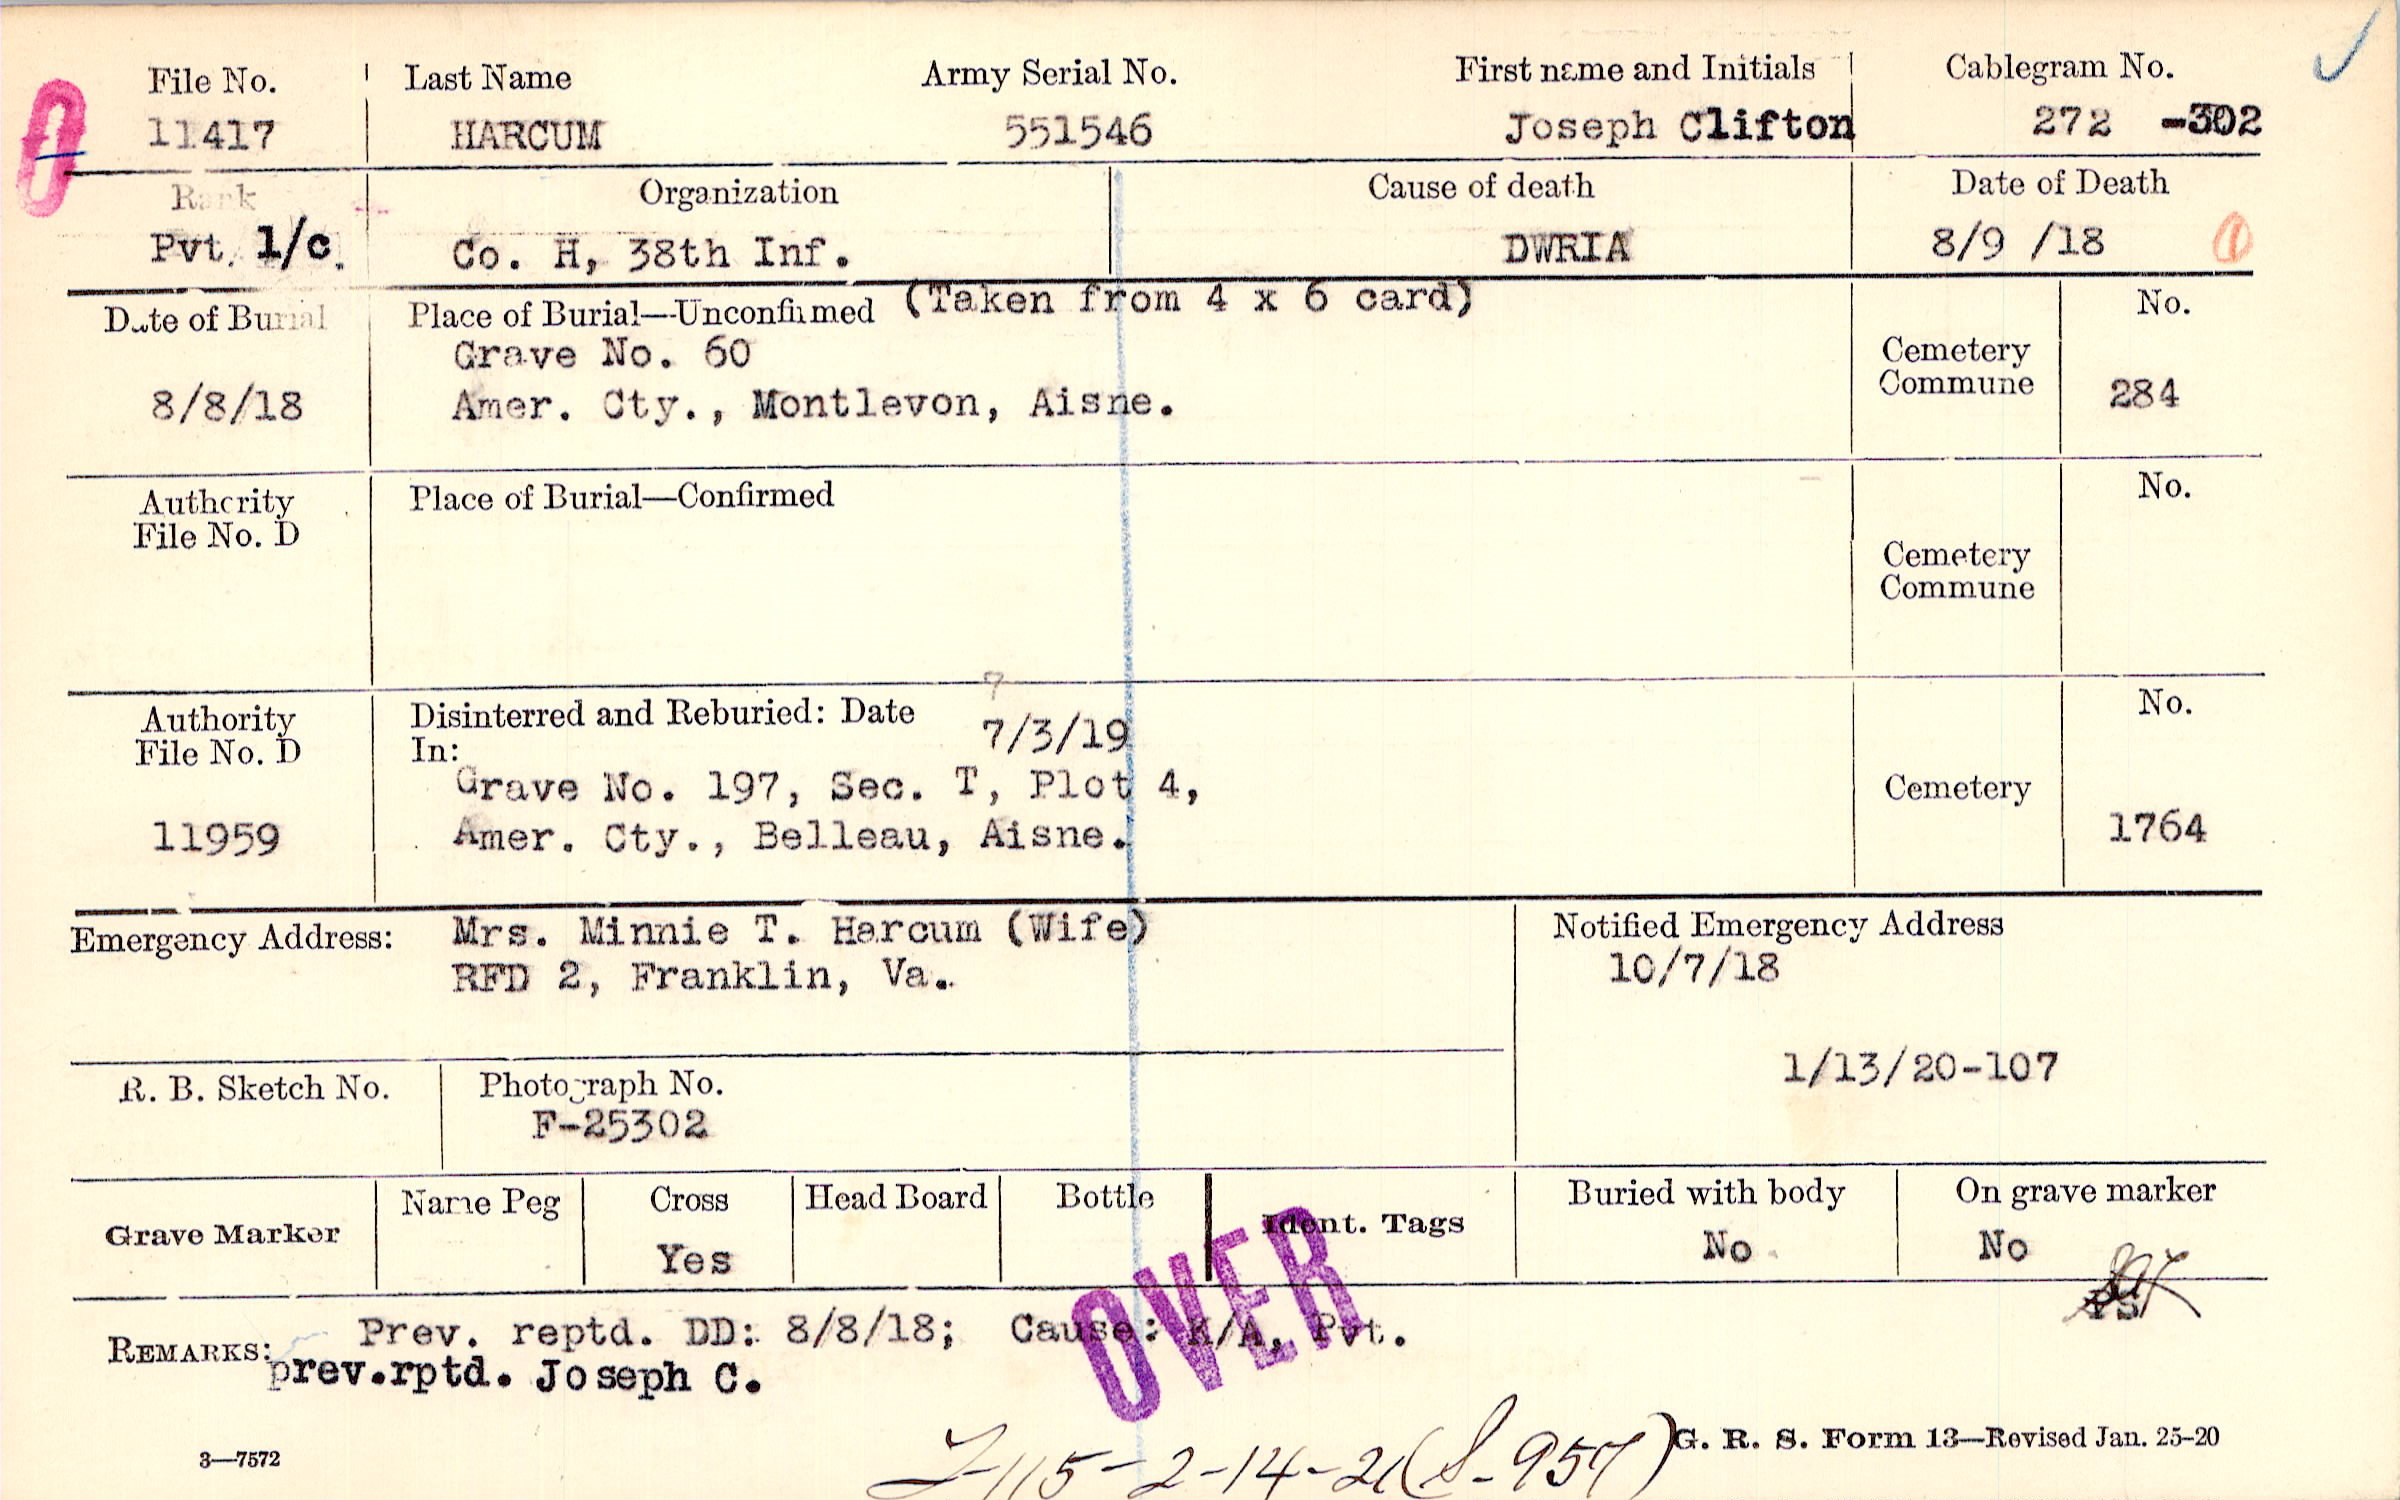 File No. Last Name Army Serial No. First name and Initials Cablegram No.
11417 HARCUM 551546 Joseph Clifton 272 -302
Rank Organization Cause of death Date of Death
Pvt. 1/c. Co. H, 38th Inf. DWRIA 8/9 /18
Date of Burial Place of Burial—Unconfirmed (Taken from 4 x 6 card) No.
Grave No. 60 Cemetery
Commune
8/8/18 Amer. Cty., Montlevon, Aisne. 284
Authority Place of Burial—Confirmed No.
File No. D
Cemetery
Commune
Authority Disinterred and Reburied: Date 7/3/19 No.
File No. D In:
Grave No. 197, Sec. T, Plot 4, Cemetery
11959 Amer. Cty., Belleau, Aisne. 1764
Emergency Address: Mrs. Minnie T. Harcum (Wife) Notified Emergency Address
RFD 2, Franklin, Va. 10/7/18
1/13/20-107
R. B. Sketch No. Photograph No.
F-25302
Grave Marker Name Peg Cross Head Board Bottle Ident. Tags Buried with body On grave marker
Yes No No
OVER
REMARKS: Prev. reptd. DD: 8/8/18; Cause: K/A, Pvt.
prev.rptd. Joseph C.
3—7572 G. R. S. Form 13—Revised Jan. 25-20
115-2-14-21(S-957)